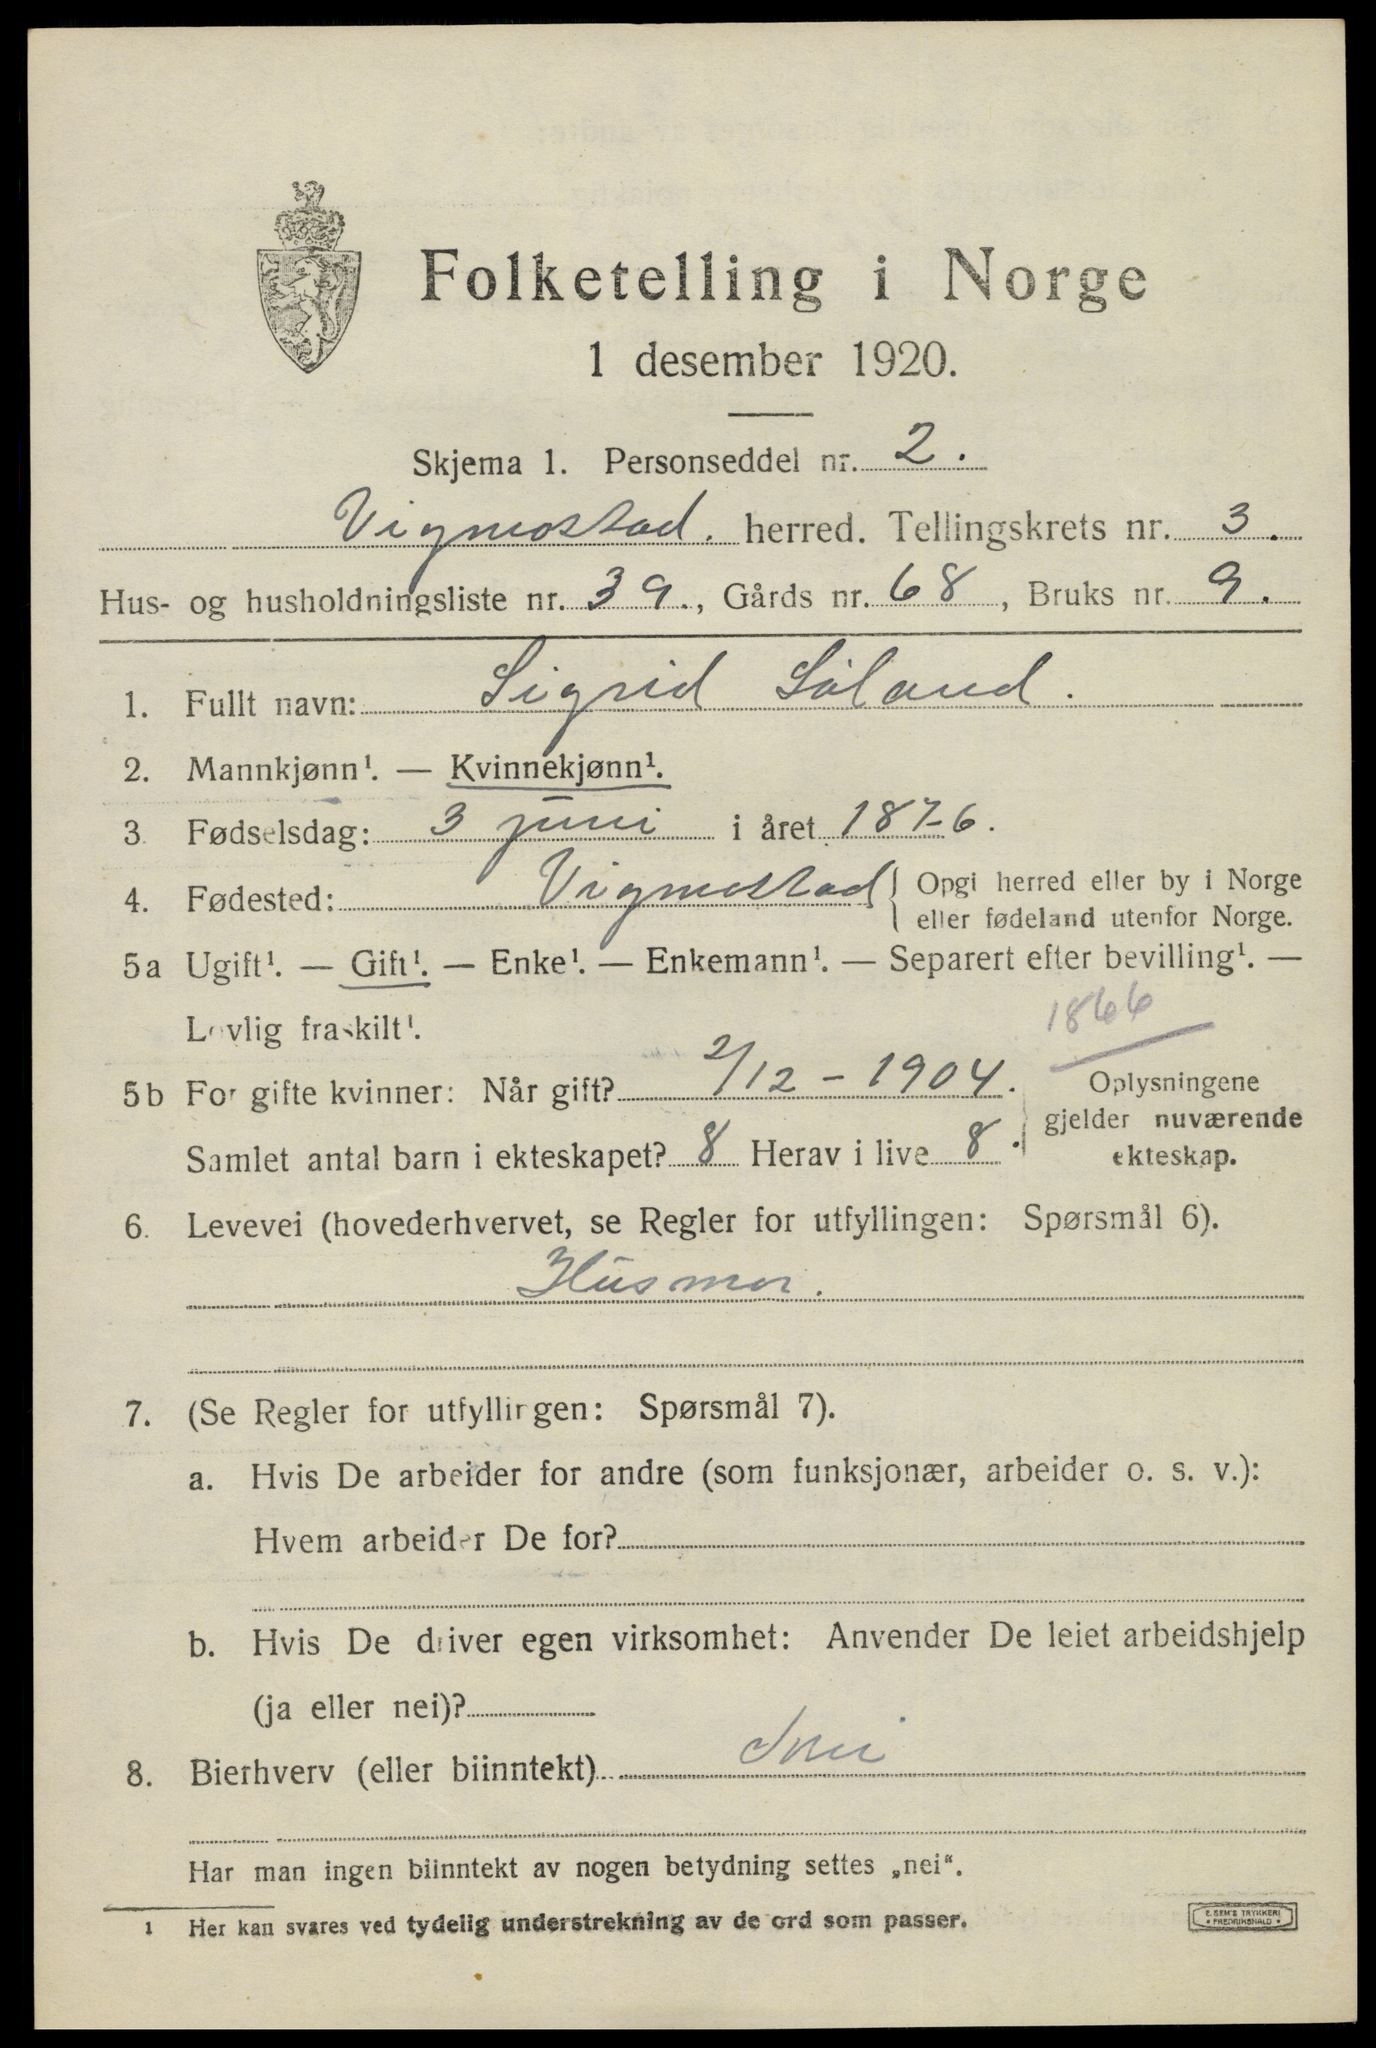 Folketelling i Norge
1 desember 1920.
Skjema 1. Personseddel nr. 2.
Vigmostad. herred. Tellingskrets nr. 3.
Hus- og husholdningsliste nr. 39., Gårds nr. 68, Bruks nr. 9.
1. Fullt navn: Sigrid Såland.
2. Mannkjønn¹. — Kvinnekjønn¹.
3. Fødselsdag: 3 juni i året 1876.
4. Fødested: Vigmostad { Opgi herred eller by i Norge
eller fødeland utenfor Norge.
5a Ugift¹. — Gift¹. — Enke¹. — Enkemann¹. — Separert efter bevilling¹. —
Lovlig fraskilt¹.
1866
5b For gifte kvinner: Når gift? 2/12 - 1904. Oplysningene
gjelder nuværende
Samlet antal barn i ekteskapet? 8 Herav i live 8. ekteskap.
6. Levevei (hovederhvervet, se Regler for utfyllingen: Spørsmål 6).
Husmor.
7. (Se Regler for utfyllingen: Spørsmål 7).
a. Hvis De arbeider for andre (som funksjonær, arbeider o. s. v.):
Hvem arbeider De for?
b. Hvis De driver egen virksomhet: Anvender De leiet arbeidshjelp
(ja eller nei)?
8. Bierhverv (eller biinntekt)
Har man ingen biinntekt av nogen betydning settes „nei“.
1 Her kan svares ved tydelig understrekning av de ord som passer.
E. SEM'S TRYKKERI
• FREDRIKSHALD •